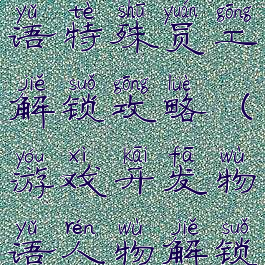 yǔ tè shū yuán gōng
语特殊员工
jiě suǒ gōng luè
解锁攻略（
yóu xì kāi fā wù
游戏开发物
yǔ rén wù jiě suǒ
语人物解锁